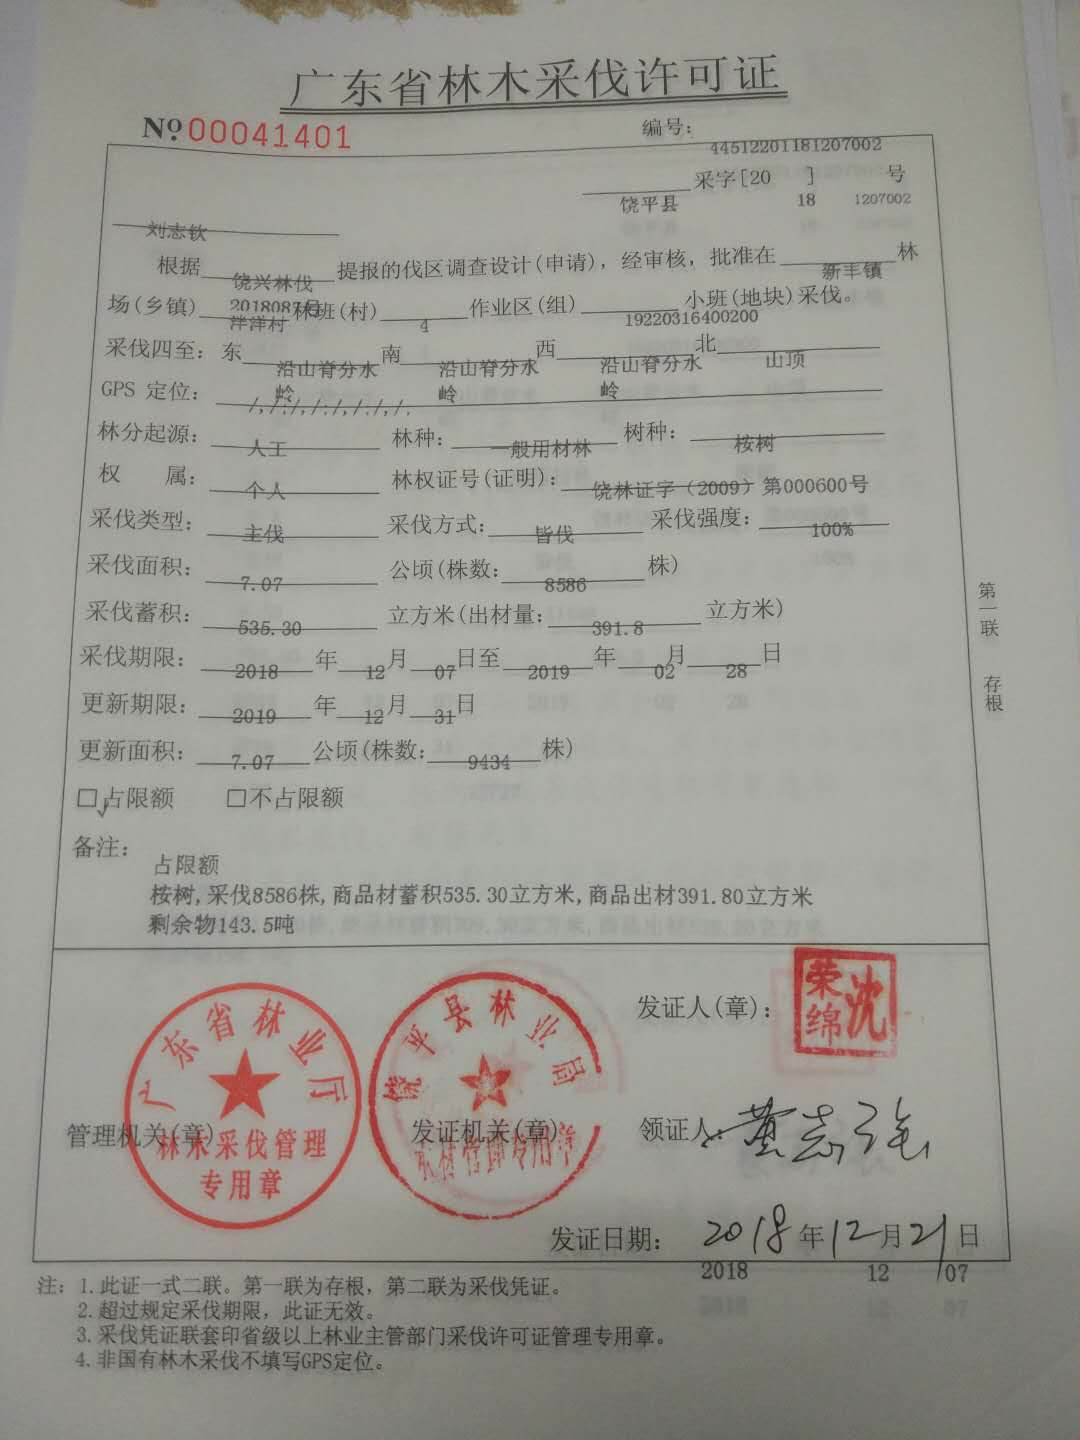 广东省林木采伐许可证
№00041401 编号：
44512201181207002
采字[20 ] 号
饶平县 18 1207002
刘志钦
根据 提报的伐区调查设计(申请)，经审核，批准在 林
饶兴林伐 新丰镇
2018087号
场(乡镇) 林班(村) 作业区(组) 小班(地块)采伐。
洋洋村 4 19220316400200
采伐四至：东 南 西 北
沿山脊分水 沿山脊分水 沿山脊分水 山顶
岭 岭 岭
GPS 定位：
/,/:/,/:/,/:/,/.
林分起源： 林种： 树种：
人工 一般用材林 桉树
权 属： 林权证号(证明)：
个人 饶林证字（2009）第000600号
采伐类型： 采伐方式： 采伐强度：
主伐 皆伐 100%
采伐面积： 公顷(株数： 株)
7.07 8586
采伐蓄积： 立方米(出材量： 立方米)
535.30 391.8
采伐期限： 年 月 日至 年 月 日
2018 12 07 2019 02 28
更新期限： 年 月 日
2019 12 31
更新面积： 公顷(株数： 株)
7.07 9434
□占限额 □不占限额
√
备注：
占限额
桉树,采伐8586株,商品材蓄积535.30立方米,商品出材391.80立方米
剩余物143.5吨
第一联 存根
发证人(章)：
荣绵沈
广东省林业厅
林木采伐管理
专用章
管理机关(章)
饶平县林业局
发证机关(章)
领证人：
发证日期： 2018年12月21日
2018 12 07
注：1.此证一式二联。第一联为存根，第二联为采伐凭证。
2.超过规定采伐期限，此证无效。
3.采伐凭证联套印省级以上林业主管部门采伐许可证管理专用章。
4.非国有林木采伐不填写GPS定位。